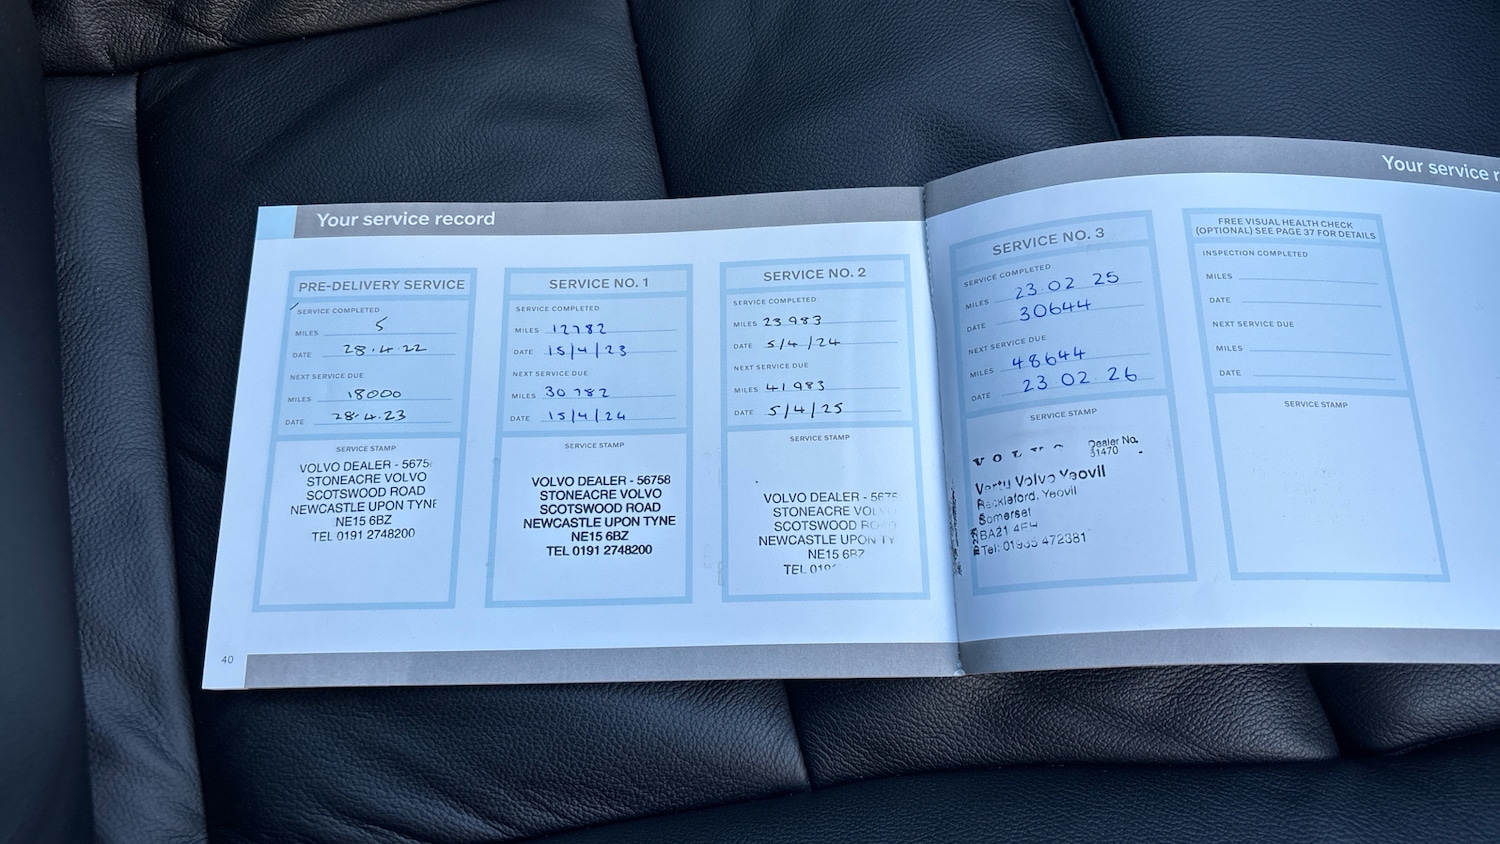 Your service record
PRE-DELIVERY SERVICE
SERVICE COMPLETED
MILES 5
DATE 28.4.22
NEXT SERVICE DUE
MILES 18000
DATE 28.4.23
SERVICE STAMP
VOLVO DEALER - 5675
STONEACRE VOLVO
SCOTSWOOD ROAD
NEWCASTLE UPON TYNE
NE15 6BZ
TEL 0191 2748200
SERVICE NO. 1
SERVICE COMPLETED
MILES 12782
DATE 15/4/23
NEXT SERVICE DUE
MILES 30782
DATE 15/4/24
SERVICE STAMP
VOLVO DEALER - 56758
STONEACRE VOLVO
SCOTSWOOD ROAD
NEWCASTLE UPON TYNE
NE15 6BZ
TEL 0191 2748200
SERVICE NO. 2
SERVICE COMPLETED
MILES 23983
DATE 5/4/24
NEXT SERVICE DUE
MILES 41983
DATE 5/4/25
SERVICE STAMP
VOLVO DEALER - 5675
STONEACRE VOLVO
SCOTSWOOD RO
NEWCASTLE UPON TY
NE15 6BZ
TEL 019
40
Your service r
SERVICE NO. 3
SERVICE COMPLETED
MILES 23.02 25
DATE 30644
NEXT SERVICE DUE
MILES 48644
DATE 23 02 26
SERVICE STAMP
VOLVO Dealer No.
31470
Vertu Volvo Yeovil
Reckleford, Yeovil
Somerset
BA21 4EH
Tel: 01935 472381
FREE VISUAL HEALTH CHECK
(OPTIONAL) SEE PAGE 37 FOR DETAILS
INSPECTION COMPLETED
MILES
DATE
NEXT SERVICE DUE
MILES
DATE
SERVICE STAMP